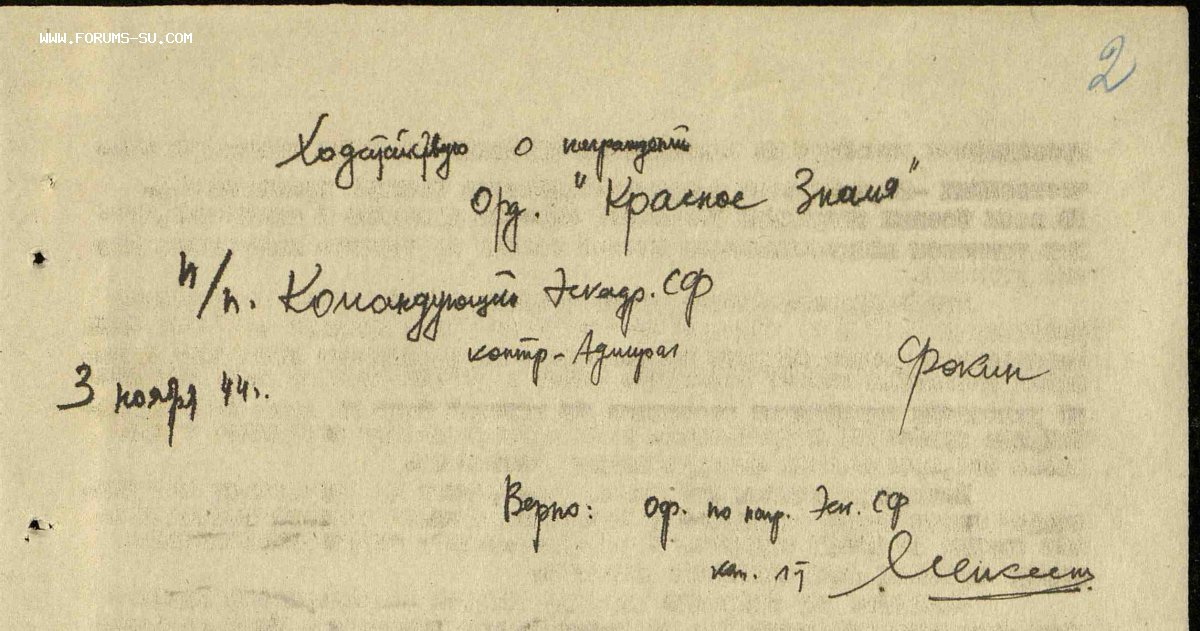 WWW.FORUMS-SU.COM
2
Ходатайствую о награждении
Орд. "Красное Знамя"
п/п. Командующий Эскадр. СФ
контр-Адмирал Фокин
3 ноября 44г.
Верно: Оф. по нагр. Эск. СФ
кап. л-т